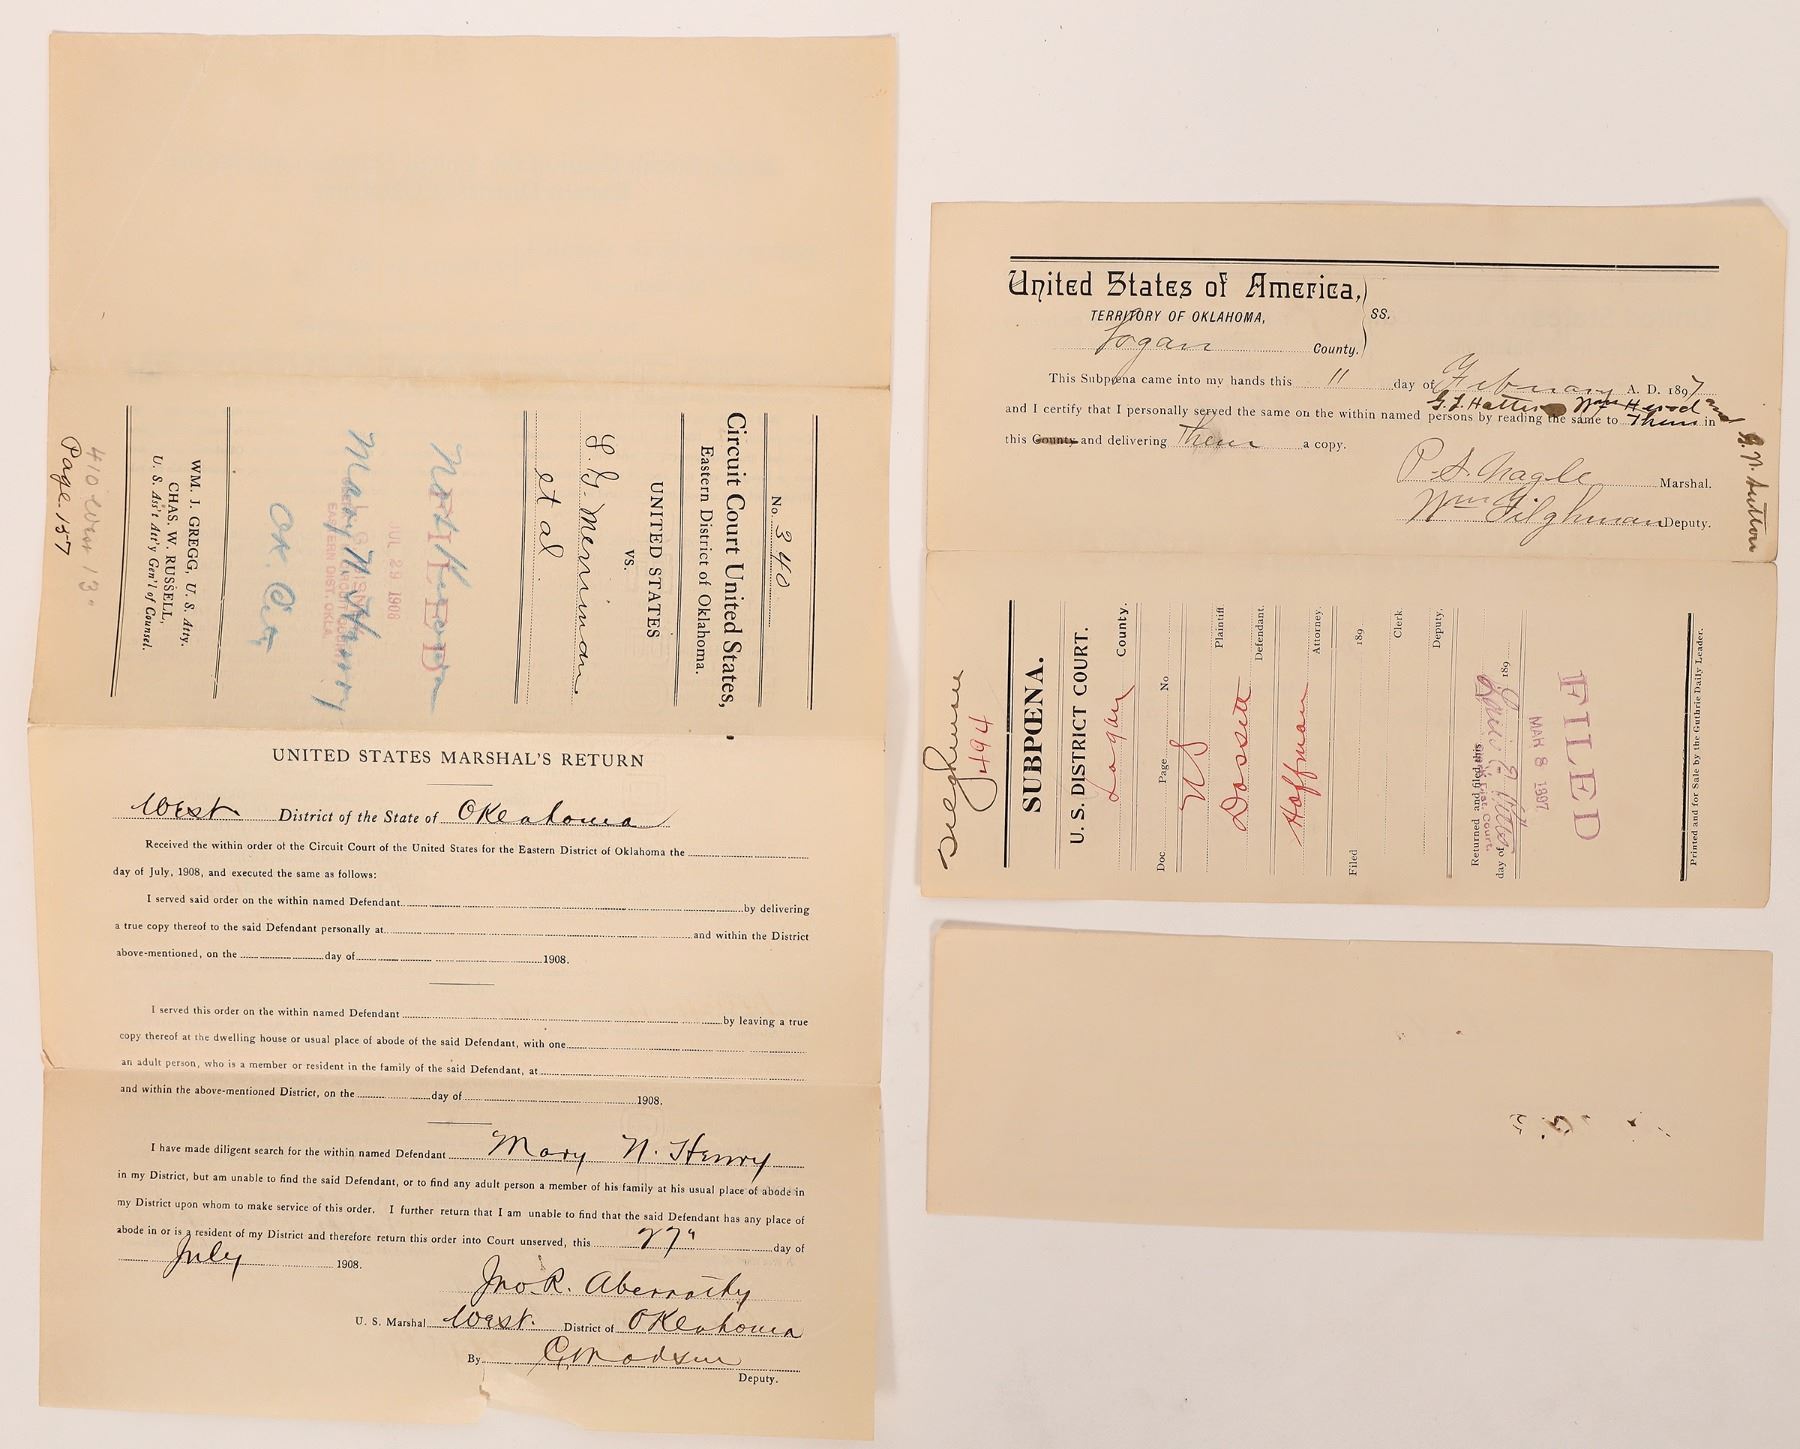 No. 340
Circuit Court United States,
Eastern District of Oklahoma.
UNITED STATES
vs.
L. G. Merriman
et al.
FILED
JUL 29 1908
CIRCUIT COURT
EASTERN DIST. OKLA.
Not Known
Mary N. Henry
OK. City
WM. J. GREGG, U. S. Atty.
CHAS. W. RUSSELL,
U. S. Ass't Att'y Gen'l of Counsel.
410 West 13"
Page. 157
UNITED STATES MARSHAL'S RETURN
West District of the State of Oklahoma
Received the within order of the Circuit Court of the United States for the Eastern District of Oklahoma the
day of July, 1908, and executed the same as follows:
I served said order on the within named Defendant by delivering
a true copy thereof to the said Defendant personally at and within the District
above-mentioned, on the day of 1908.
I served this order on the within named Defendant by leaving a true
copy thereof at the dwelling house or usual place of abode of the said Defendant, with one
an adult person, who is a member or resident in the family of the said Defendant, at
and within the above-mentioned District, on the day of 1908.
I have made diligent search for the within named Defendant Mary N. Henry
in my District, but am unable to find the said Defendant, or to find any adult person a member of his family at his usual place of abode in
my District upon whom to make service of this order. I further return that I am unable to find that the said Defendant has any place of
abode in or is a resident of my District and therefore return this order into Court unserved, this 27" day of
July 1908.
Jno. R. Abernathy
U. S. Marshal West. District of Oklahoma
By C Madsen
Deputy.
United States of America,
TERRITORY OF OKLAHOMA, SS.
Logan County.
This Subpœna came into my hands this 11 day of February A. D. 1897
and I certify that I personally served the same on the within named persons by reading the same to Them in
G. T. Hatter Wm Herod and
G. N. Sutton
this County and delivering Them a copy.
P. S. Nagle Marshal.
Wm Tilghman Deputy.
494
SUBPŒNA.
U. S. DISTRICT COURT.
Logan County.
Doc. Page No
U S Plaintiff
Dossett Defendant.
Hoffman Attorney.
Filed 189
Clerk
Deputy.
Returned and filed this
day of 189
FILED
MAR 8 1897
Printed and for Sale by the Guthrie Daily Leader.